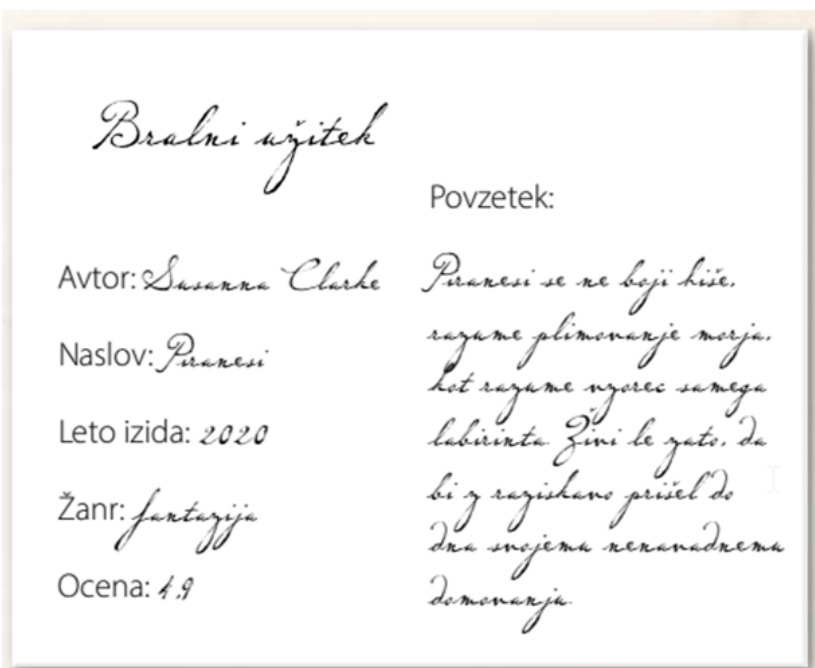 Bralni užitek
Avtor: Susanna Clarke
Naslov: Piranesi
Leto izida: 2020
Žanr: fantazija
Ocena: 4.9
Povzetek:
Piranesi se ne boji hiše,
razume plimovanje morja,
kot razume vzorec samega
labirinta. Živi le zato, da
bi z raziskavo prišel do
dna svojemu nenavadnemu
domovanju.